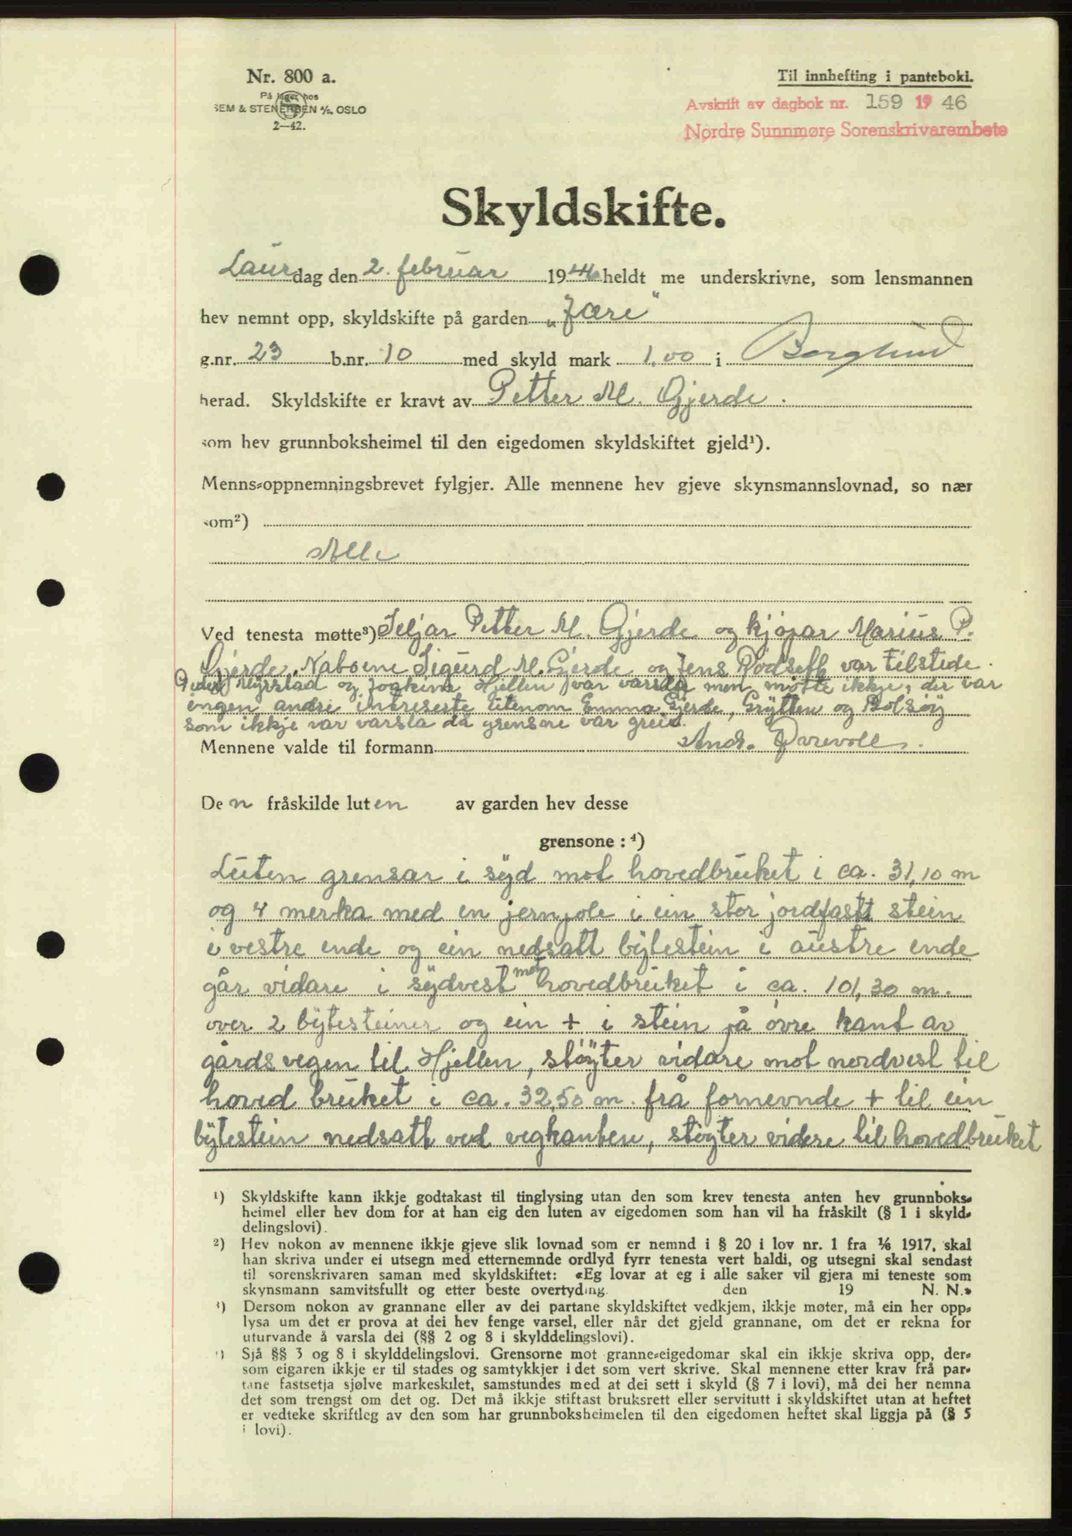 Nr. 800 a.
På lager hos
SEM & STENERSEN A/S. OSLO
2—42.
Til innhefting i panteboki.
Avskrift av dagbok nr. 159 1946
Nordre Sunnmøre Sorenskrivarembete
Skyldskifte.
Laurdag den 2. februar 1946 heldt me underskrivne, som lensmannen
hev nemnt opp, skyldskifte på garden „Jære“
g.nr. 23 b.nr. 10 med skyld mark 1,00 i Borgund
herad. Skyldskifte er kravt av Petter M. Gjerde.
som hev grunnboksheimel til den eigedomen skyldskiftet gjeld¹).
Menns-oppnemningsbrevet fylgjer. Alle mennene hev gjeve skynsmannslovnad, so nær
som²)
Alle
Ved tenesta møtte³) Seljar Petter M. Gjerde og kjøpar Marius P.
Gjerde. Naboene Sigurd M. Gjerde og Jens Rødseth var tilstede.
Peder Myrstad og Joakim Hjellen var varsla men møtte ikkje, der var
ingen andre interesserte utenom Emma Gjerde, Grytten og Bolsøy
som ikkje var varsla då grensene var greid.
Mennene valde til formann Andr. Ørevoll.
Den fråskilde luten av garden hev desse
grensone : ⁴)
Luten grensar i syd mot hovedbruket i ca. 31,10 m
og 4 merka med en jernpole i ein stor jordfast stein
i vestre ende og ein nedsatt bytestein i austre ende
går vidare i sydvest mot hovedbruket i ca. 101,30 m.
over 2 bytesteiner og ein + i stein på øvre kant av
gårdsvegen til Hjellen, støyter vidare mot nordvest til
hovedbruket i ca. 32,50 m. frå fornevnde + til ein
bytestein nedsatt ved vegkanten, støyter videre til hovedbruket
¹) Skyldskifte kann ikkje godtakast til tinglysing utan den som krev tenesta anten hev grunnboks-
heimel eller hev dom for at han eig den luten av eigedomen som han vil ha fråskilt (§ 1 i skyld-
delingslovi).
²) Hev nokon av mennene ikkje gjeve slik lovnad som er nemnd i § 20 i lov nr. 1 fra 1/6 1917, skal
han skriva under ei utsegn med etternemnde ordlyd fyrr tenesta vert haldi, og utsegni skal sendast
til sorenskrivaren saman med skyldskiftet: «Eg lovar at eg i alle saker vil gjera mi teneste som
skynsmann samvitsfullt og etter beste overtyding. den 19 N. N.»
³) Dersom nokon av grannane eller av dei partane skyldskiftet vedkjem, ikkje møter, må ein her opp-
lysa um det er prova at dei hev fenge varsel, eller når det gjeld grannane, om det er rekna for
uturvande å varsla dei (§§ 2 og 8 i skylddelingslovi).
⁴) Sjå §§ 3 og 8 i skylddelingslovi. Grensorne mot granne-eigedomar skal ein ikkje skriva opp, der-
som eigaren ikkje er til stades og samtykkjer i det som vert skrive. Skal mennene etter krav frå par-
tane fastsetja sjølve markeskilet, samstundes med at dei sett i skyld (§ 7 i lovi), må dei her nemna
det som trengst om det og. Det må ikkje stiftast bruksrett eller servitutt i skyldskiftet utan at heftet
er vedteke skriftleg av den som har grunnboksheimelen til den eigedomen heftet skal liggja på (§ 5
i lovi).